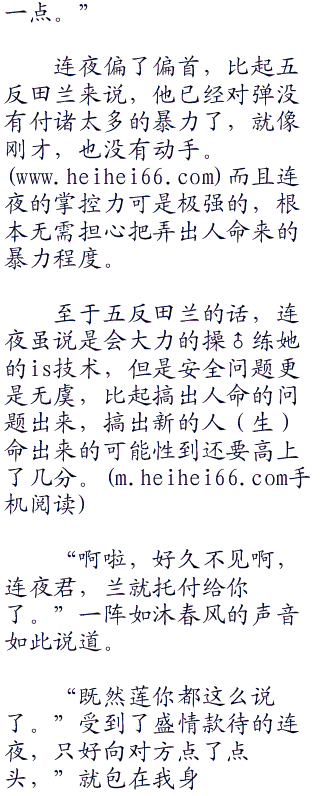 一点。”
连夜偏了偏首，比起五
反田兰来说，他已经对弹没
有付诸太多的暴力了，就像
刚才，也没有动手。
(www.heihei66.com)而且连
夜的掌控力可是极强的，根
本无需担心把弄出人命来的
暴力程度。
至于五反田兰的话，连
夜虽说是会大力的操♂练她
的is技术，但是安全问题更
是无虞，比起搞出人命的问
题出来，搞出新的人（生）
命出来的可能性到还要高上
了几分。(m.heihei66.com手
机阅读)
“啊啦，好久不见啊，
连夜君，兰就托付给你
了。”一阵如沐春风的声音
如此说道。
“既然莲你都这么说
了。”受到了盛情款待的连
夜，只好向对方点了点
头，”就包在我身